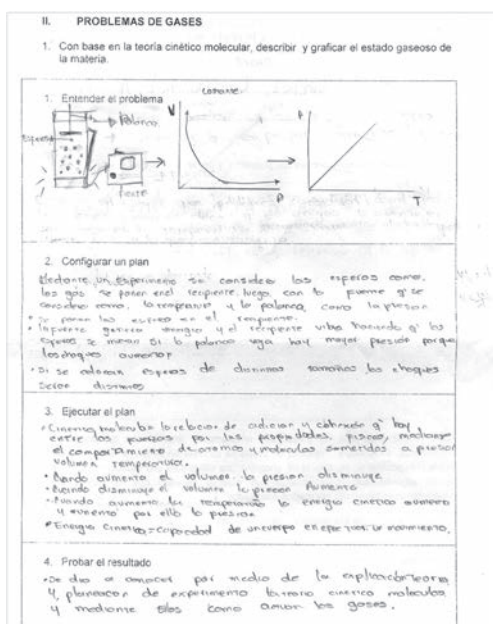 II. PROBLEMAS DE GASES
1. Con base en la teoría cinético molecular, describir y graficar el estado gaseoso de
la materia.
1. Entender el problema
V
P
T
Palanca
2. Configurar un plan
Mediante un experimento se considera las esferas como
los gas se ponen en el recipiente, luego con la fuente q' se
considera como la temperatura y la palanca como la presion
• se ponen las esferas en el recipiente.
• la fuente genera energia y el recipiente vibra haciendo q' las
esferas se muevan si la palanca baja hay mayor presion porque
los choques aumentan
• Si se colocan esferas de distintos tamaños los choques
seran distintos
3. Ejecutar el plan
Cinetica molecular la relacion de adicion y cohesion q' hay
entre las por las propiedades, fisicas, mediante
el comportamiento de atomos y moleculas sometidas a presion
volumen temperatura.
• Cuando aumenta el volumen la presion disminuye
• Cuando disminuye el volumen la presion aumenta
• Cuando aumenta la temperatura la energia cinetica aumenta
y aumenta por ello la presion
• Energia Cinetica = Capacidad de un cuerpo en movimiento.
4. Probar el resultado
• Se dio a conocer por medio de la explicacion teoria
y planeacion de experimento la teoria cinetica molecular
y mediante ellos como actuan los gases.